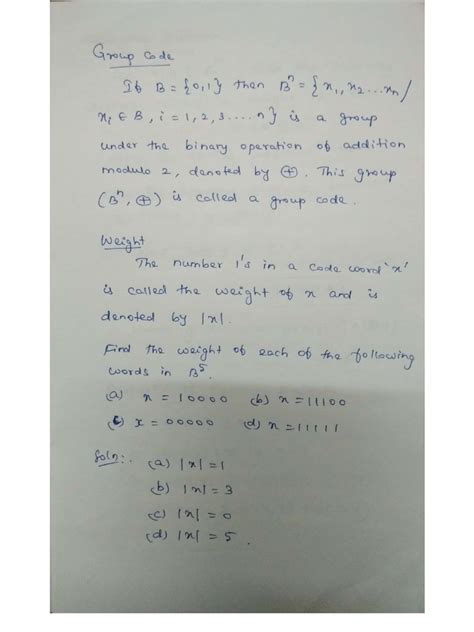 Group Code
If B = {0,1} then Bⁿ = {x₁, x₂ ... xₙ /
xᵢ ∈ B, i = 1, 2, 3 .... n} is a group
under the binary operation of addition
modulo 2, denoted by ⊕. This group
(Bⁿ, ⊕) is called a group code.
Weight
The number 1's in a code word 'x'
is called the weight of x and is
denoted by |x|.
Find the weight of each of the following
words in B⁵.
(a) x = 10000 (b) x = 11100
(c) x = 00000 (d) x = 11111
Soln:- (a) |x| = 1
(b) |x| = 3
(c) |x| = 0
(d) |x| = 5.